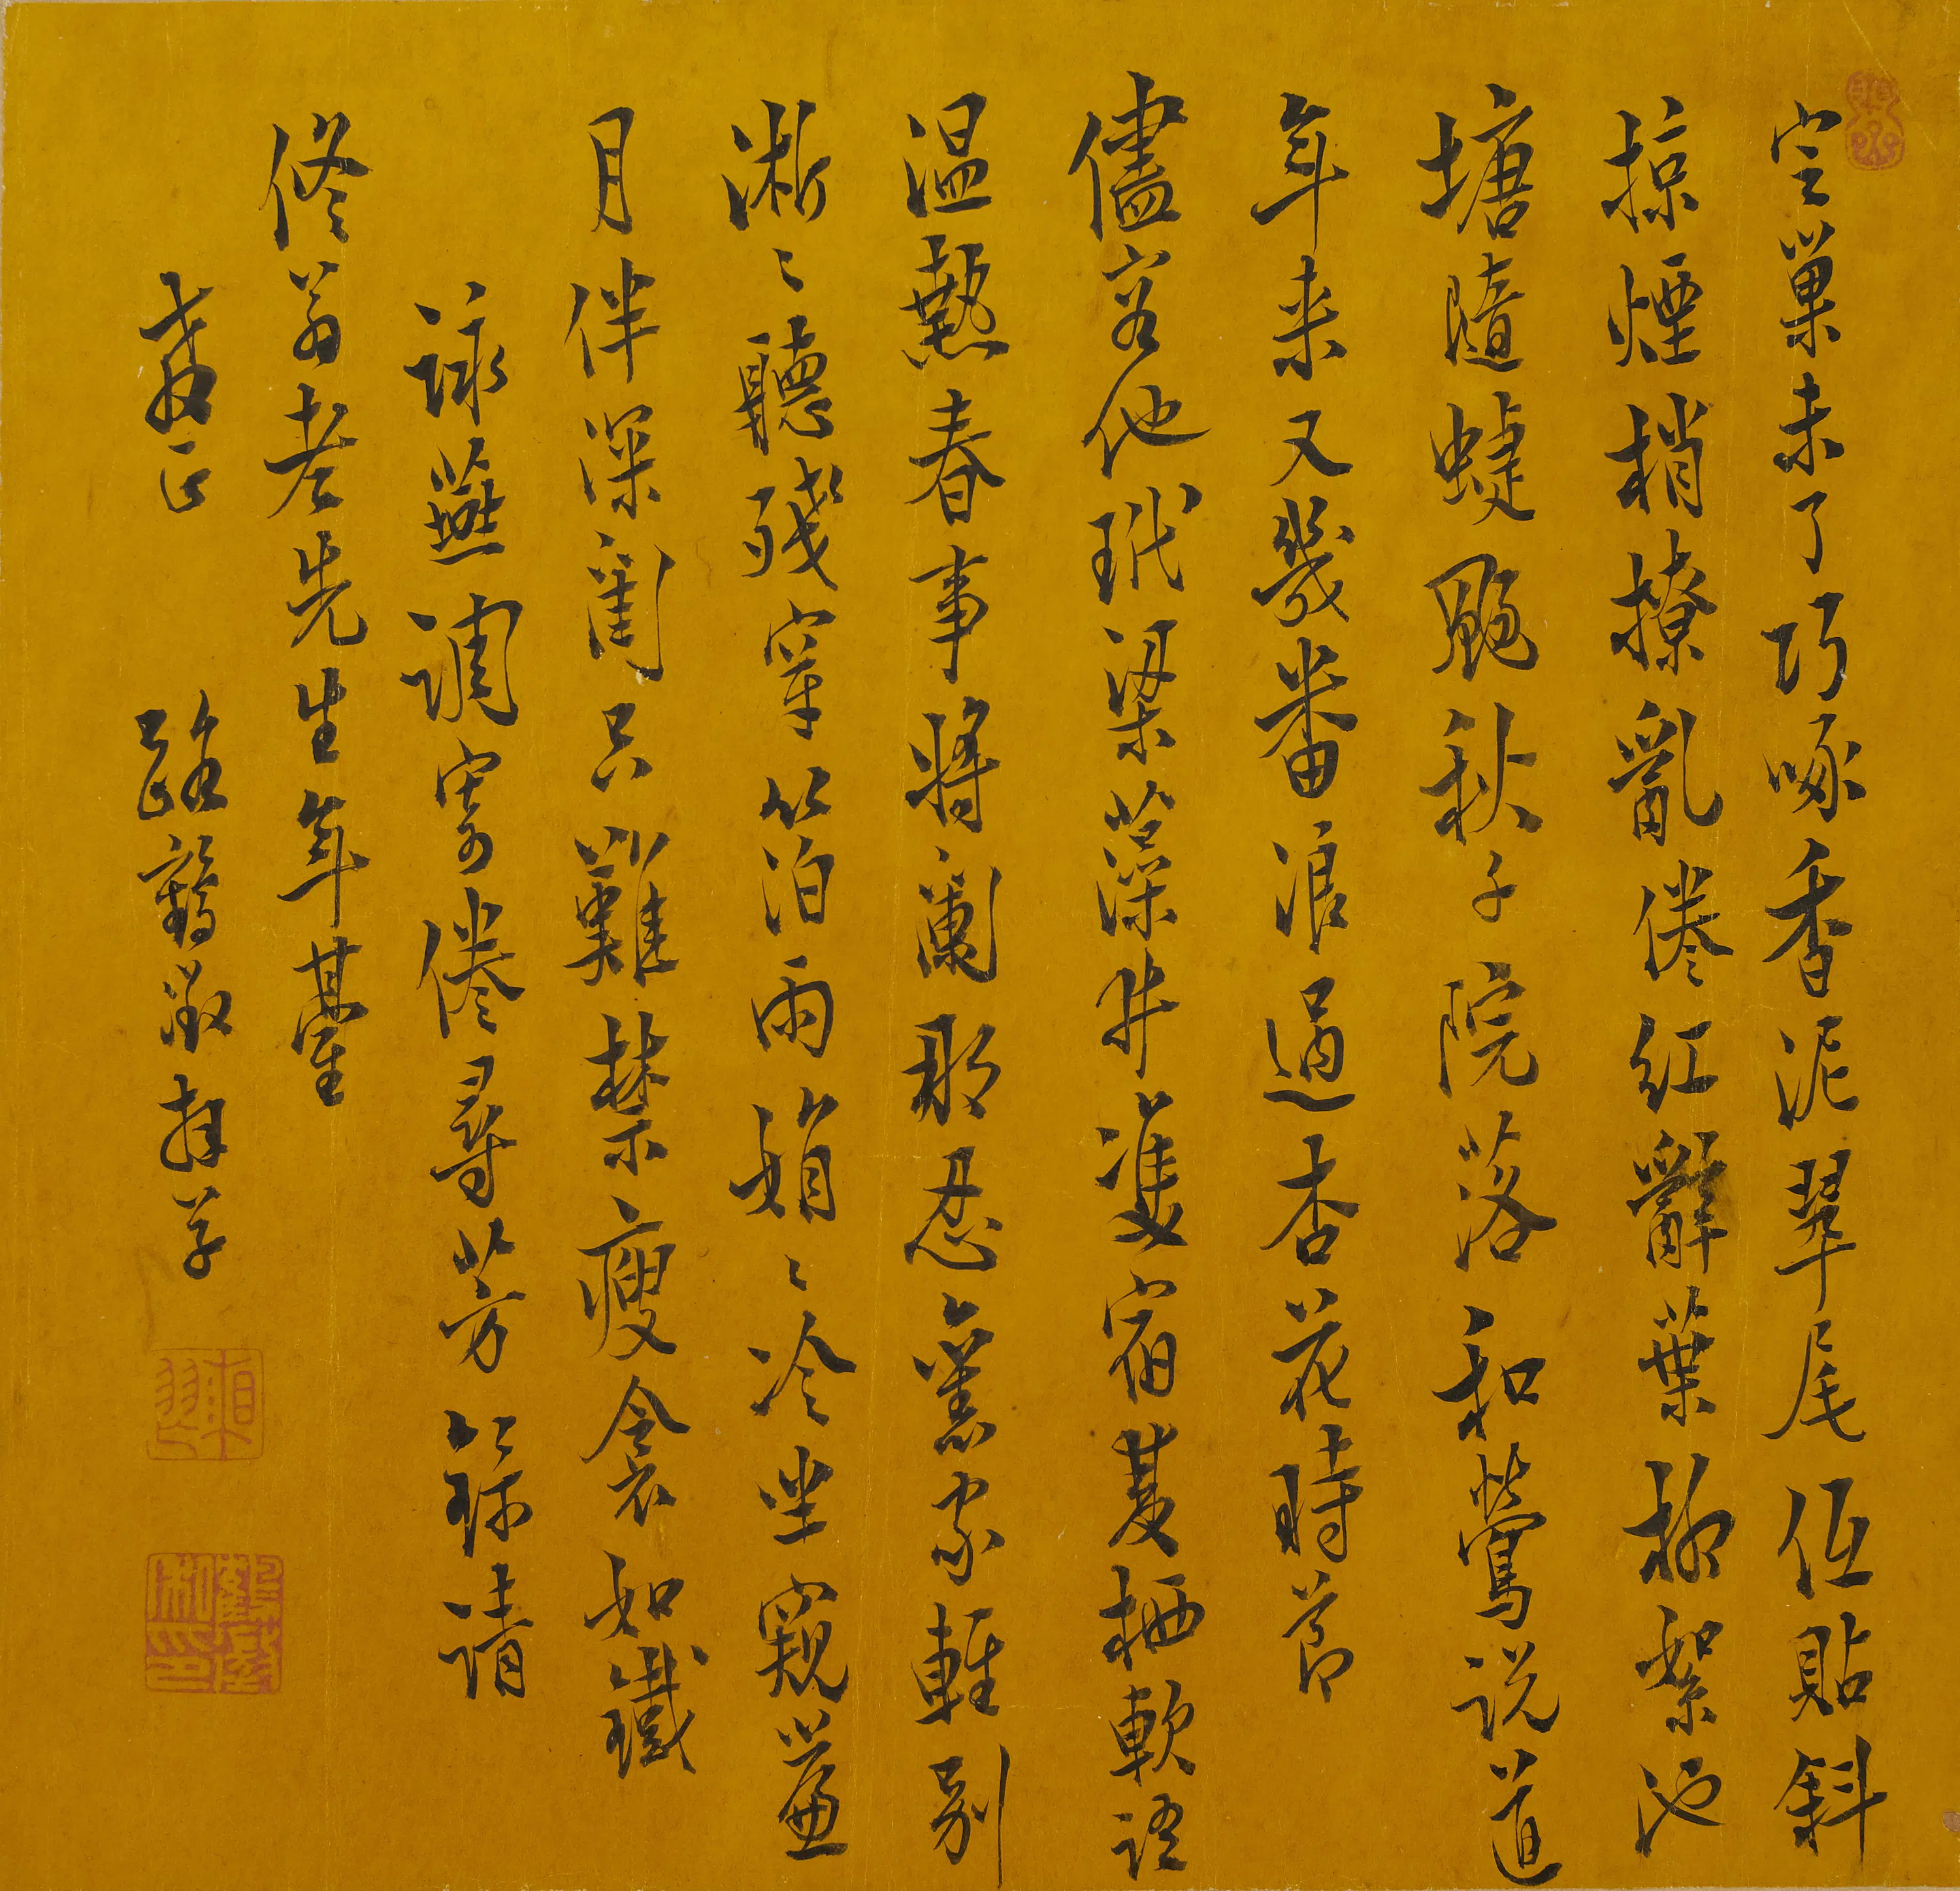 定巢未了巧啄香泥翠尾低貼斜
掠煙梢撩亂倦紅辭葉柳絮池
塘隨蜨颺秋千院落和鶯説道
年來又幾番浪過杏花時節
儘容他玳梁藻井雙宿更栖軟語
温熱春事將闌那忍舊家輕別
淅淅聽殘穿竹泊雨娟娟冷坐窺簾
月伴深閨只難禁瘦衾如鐵
詠燕調寄倦尋芳錄請
修翁老先生年
教正
路鶴敬拜草